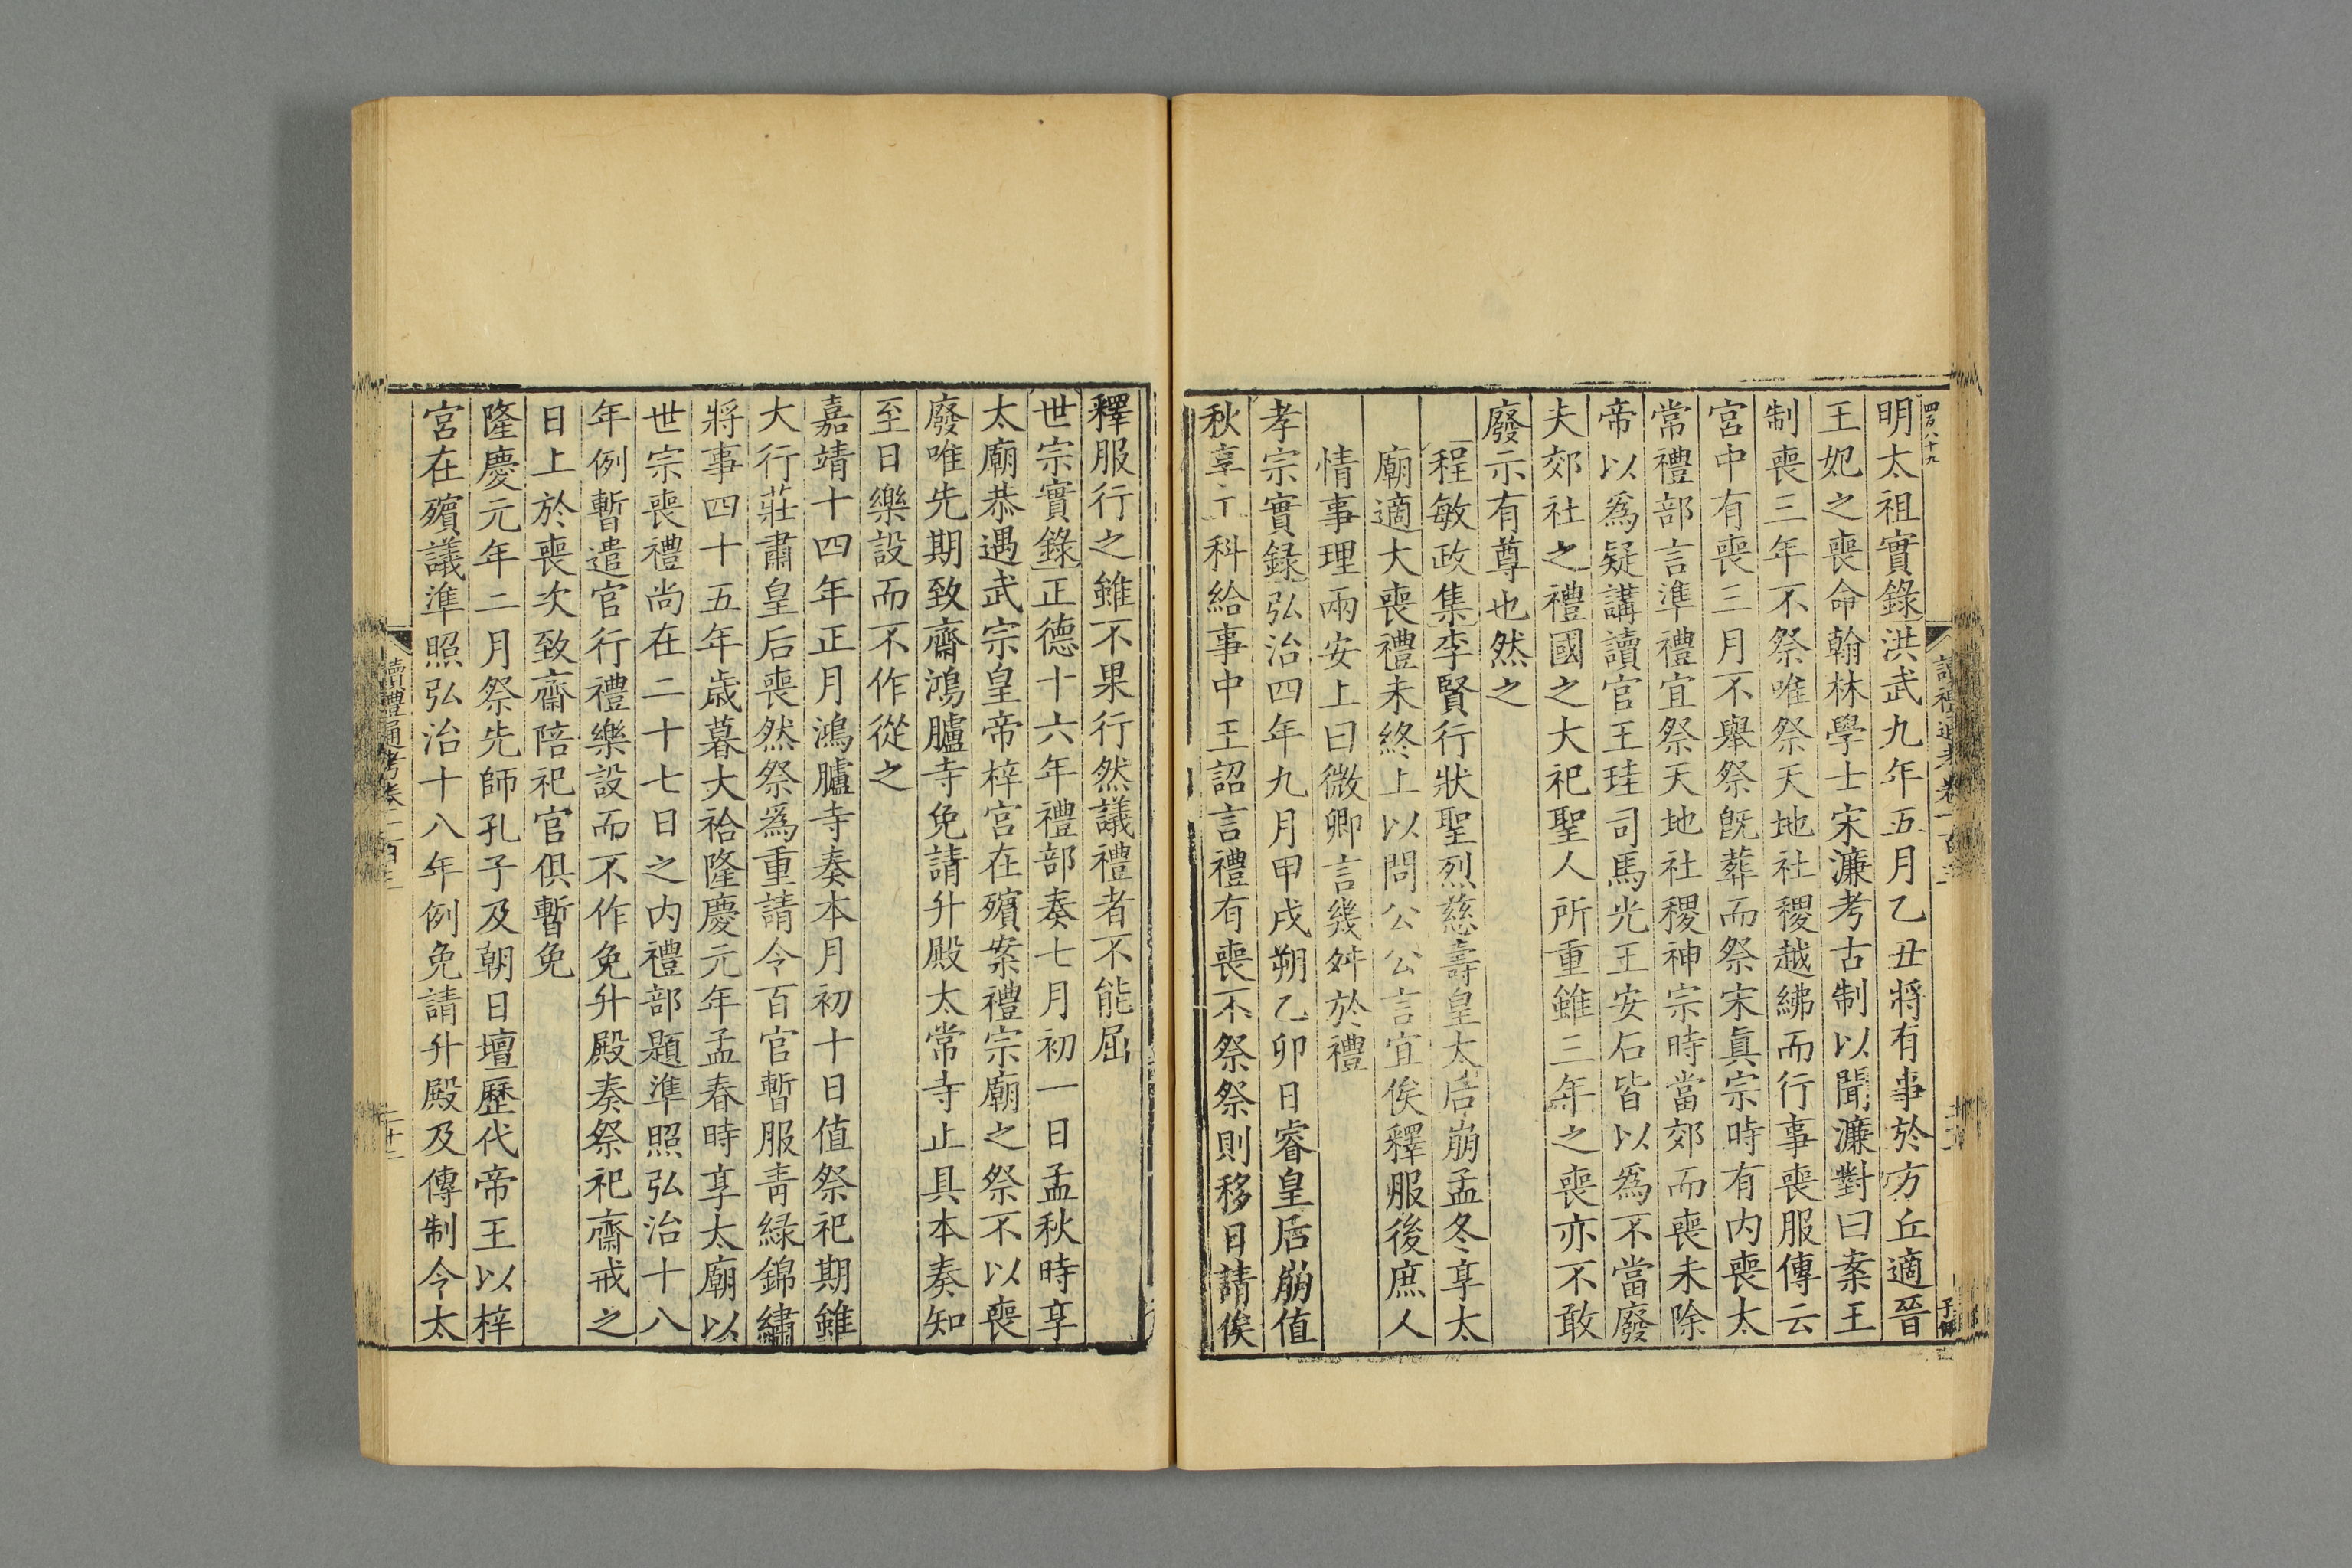 四百八十九
明太祖實錄洪武九年五月乙丑將有事於方丘適晉
王妃之喪命翰林學士宋濂考古制以聞濂對曰案王
制喪三年不祭唯祭天地社稷越紼而行事喪服傳云
宮中有喪三月不舉祭旣葬而祭宋眞宗時有內喪太
常禮部言準禮宜祭天地社稷神宗時當郊而喪未除
帝以爲疑講讀官王珪司馬光王安石皆以爲不當廢
夫郊社之禮國之大祀聖人所重雖三年之喪亦不敢
廢示有尊也然之
程敏政集李賢行狀聖烈慈壽皇太后崩孟冬享太
廟適大喪禮未終上以問公公言宜俟釋服後庶人
情事理兩安上曰微卿言幾舛於禮
孝宗實錄弘治四年九月甲戌朔乙卯日睿皇后崩值
秋享科給事中王詔言禮有喪不祭祭則移日請俟
釋服行之雖不果行然議禮者不能屈
世宗實錄正德十六年禮部奏七月初一日孟秋時享
太廟恭遇武宗皇帝梓宮在殯案禮宗廟之祭不以喪
廢唯先期致齋鴻臚寺免請升殿太常寺止具本奏知
至日樂設而不作從之
嘉靖十四年正月鴻臚寺奏本月初十日值祭祀期雖
大行莊肅皇后喪然祭爲重請令百官暫服靑緑錦繡
將事四十五年歲暮大祫隆慶元年孟春時享太廟以
世宗喪禮尚在二十七日之內禮部題準照弘治十八
年例暫遣官行禮樂設而不作免升殿奏祭祀齋戒之
日上於喪次致齋陪祀官俱暫免
隆慶元年二月祭先師孔子及朝日壇歷代帝王以梓
宮在殯議準照弘治十八年例免請升殿及傳制令太
讀禮通考卷一百三